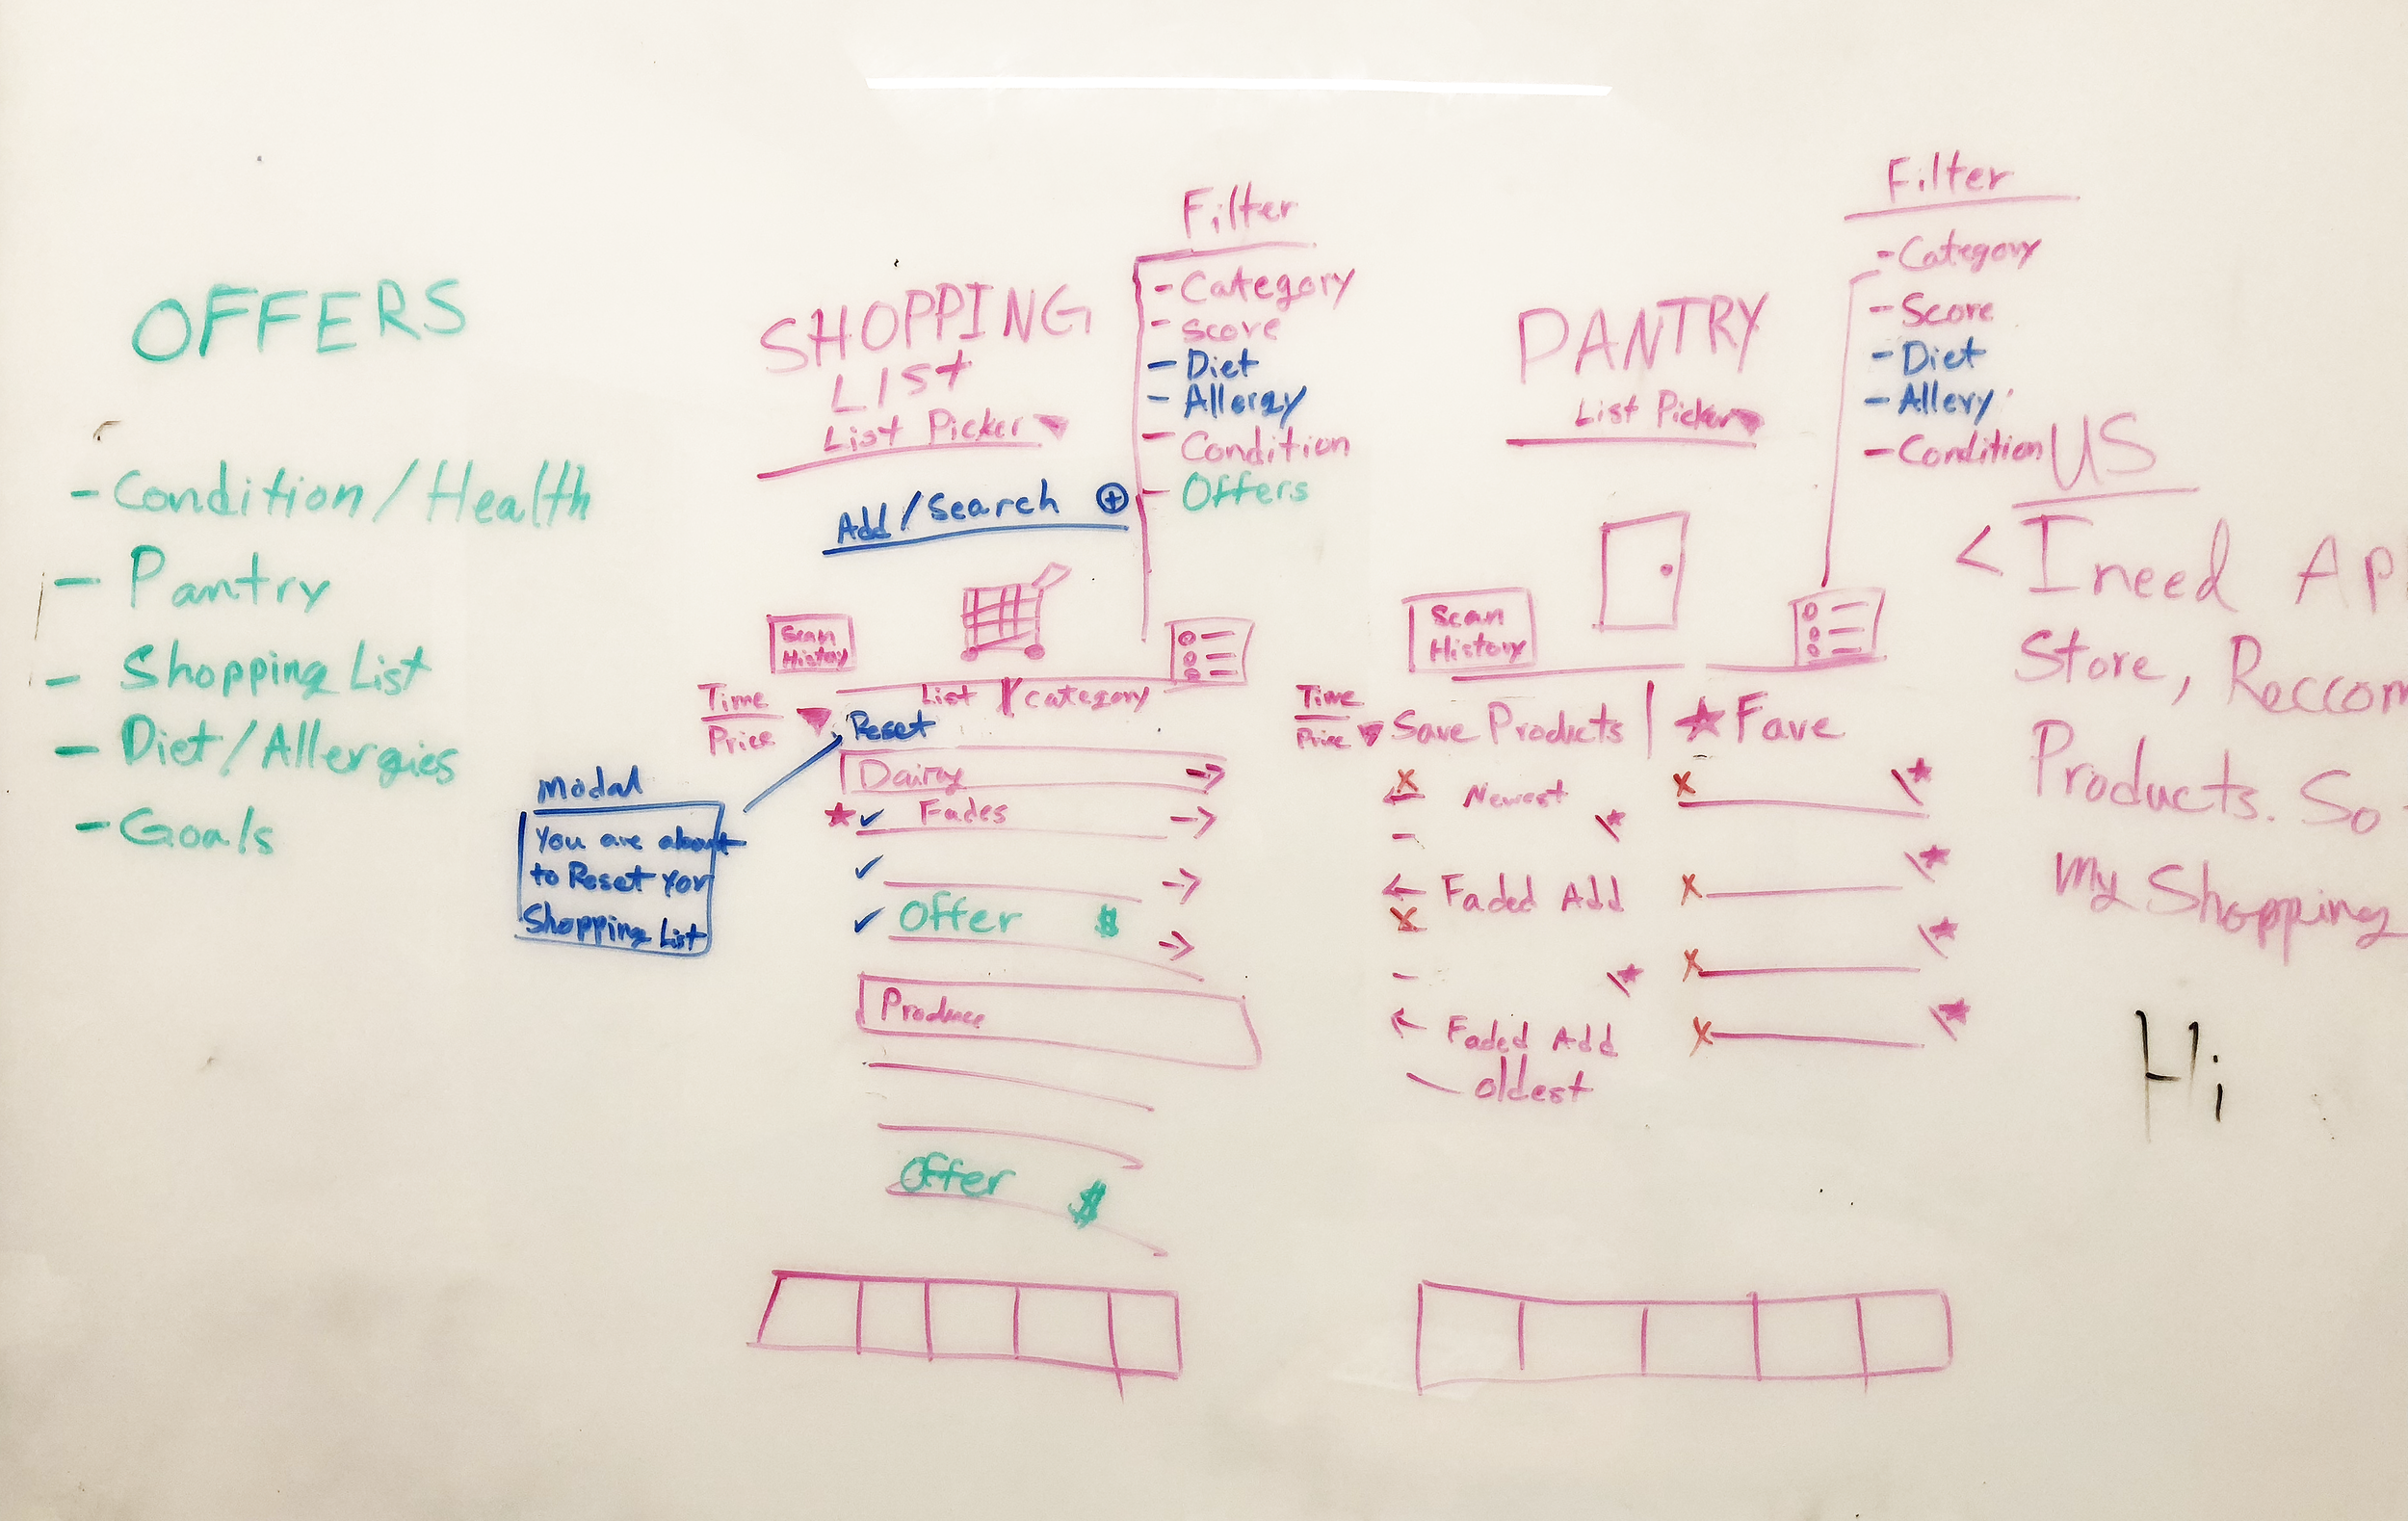 OFFERS
- Condition/Health
- Pantry
- Shopping List
- Diet/Allergies
- Goals
SHOPPING
LIST
List Picker
Add/Search +
Filter
- Category
- Score
- Diet
- Allergy
- Condition
- Offers
Scan
History
List / Category
Time
Price
Reset
Modal
You are about
to Reset yor
Shopping List
Dairy
Fades
Offer $
Produce
Offer $
PANTRY
List Picker
Filter
- Category
- Score
- Diet
- Allery
- Condition
Scan
History
Time
Price
Save Products | ★ Fave
Newest
Faded Add
Faded Add
Oldest
US
< I need Ap
Store, Reccom
Products. So
My Shopping
Hi